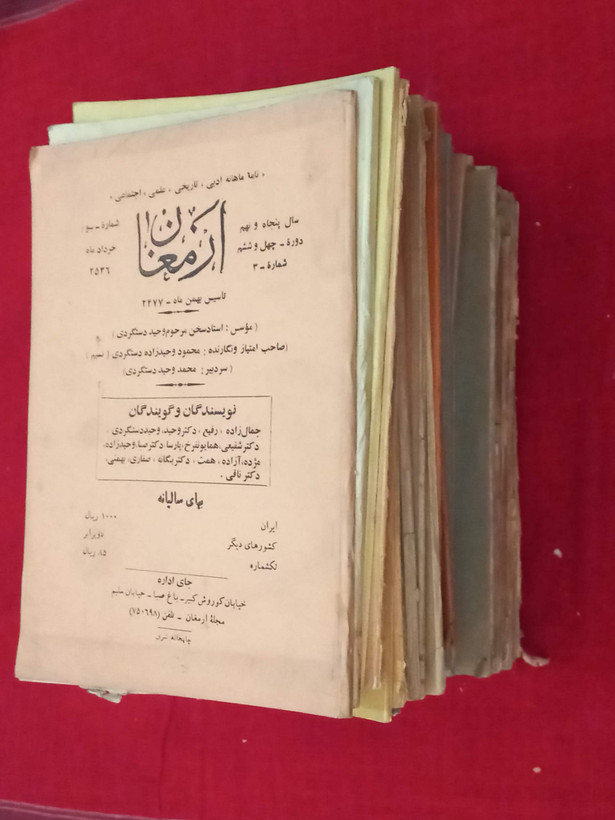 « نامهٔ ماهانه ادبی ، تاریخی ، علمی ، اجتماعی »
سال پنجاه و نهم
دورهٔ ـ چهل و ششم
شمارهٔ ـ ۳
ارمغان
شمارهٔ ـ سوم
خرداد ماه
۲۵۳۶
تاسیس بهمن ماه ـ ۲۴۷۷
( مؤسس : استاد سخن مرحوم وحید دستگردی )
(صاحب امتیاز و نگارنده : محمود وحیدزاده دستگردی ( نسیم )
( سردبیر : محمد وحید دستگردی )
نویسندگان و گویندگان
جمال‌زاده ، رفیع ، دکتر وحید ، وحید دستگردی ،
دکتر شفیعی ، همایونفرخ ، پارسا ، دکتر صبا ، وحیدزاده ،
مژده ، آزاده ، همت ، دکتر یگانه ، صفاری ، بهمنی ،
دکتر نافی .
بهای سالیانه
ایران ۱۰۰۰ ریال
کشورهای دیگر دو برابر
تکشماره ۸۵ ریال
جای اداره
خیابان کوروش کبیر ـ باغ صبا ـ خیابان سلیم
مجلهٔ ارمغان ـ تلفن (۷۵۰۶۹۸)
چاپخانه شرق